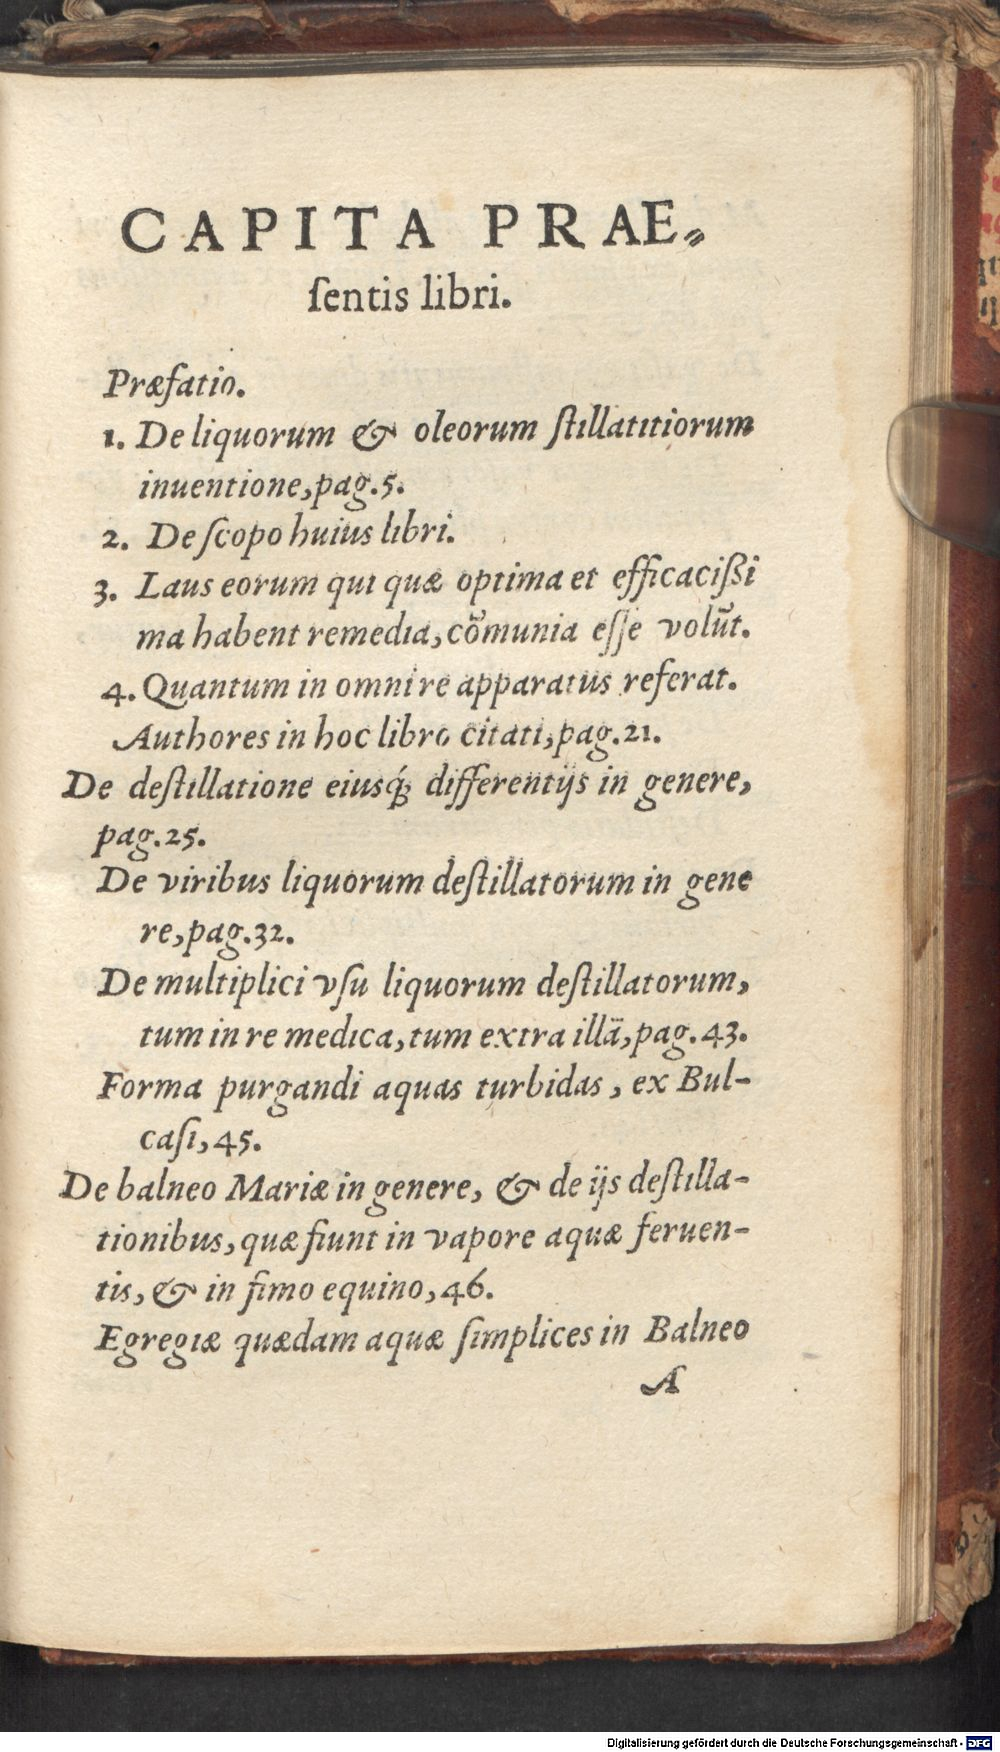 CAPITA PRAE⸗
ſentis libri.
Præfatio.
1. De liquorum & oleorum ſtillatitiorum
inuentione, pag. 5.
2. De ſcopo huius libri.
3. Laus eorum qui quæ optima et efficacißi
ma habent remedia, cõmunia eſſe volũt.
4. Quantum in omni re apparatus referat.
Authores in hoc libro citati, pag. 21.
De deſtillatione eiusq́; differentijs in genere,
pag. 25.
De viribus liquorum deſtillatorum in gene
re, pag. 32.
De multiplici vſu liquorum deſtillatorum,
tum in re medica, tum extra illã, pag. 43.
Forma purgandi aquas turbidas, ex Bul-
caſi, 45.
De balneo Mariæ in genere, & de ijs deſtilla-
tionibus, quæ fiunt in vapore aquæ feruen-
tis, & in fimo equino, 46.
Egregiæ quædam aquæ ſimplices in Balneo
A
Digitalisierung gefördert durch die Deutsche Forschungsgemeinschaft - DFG